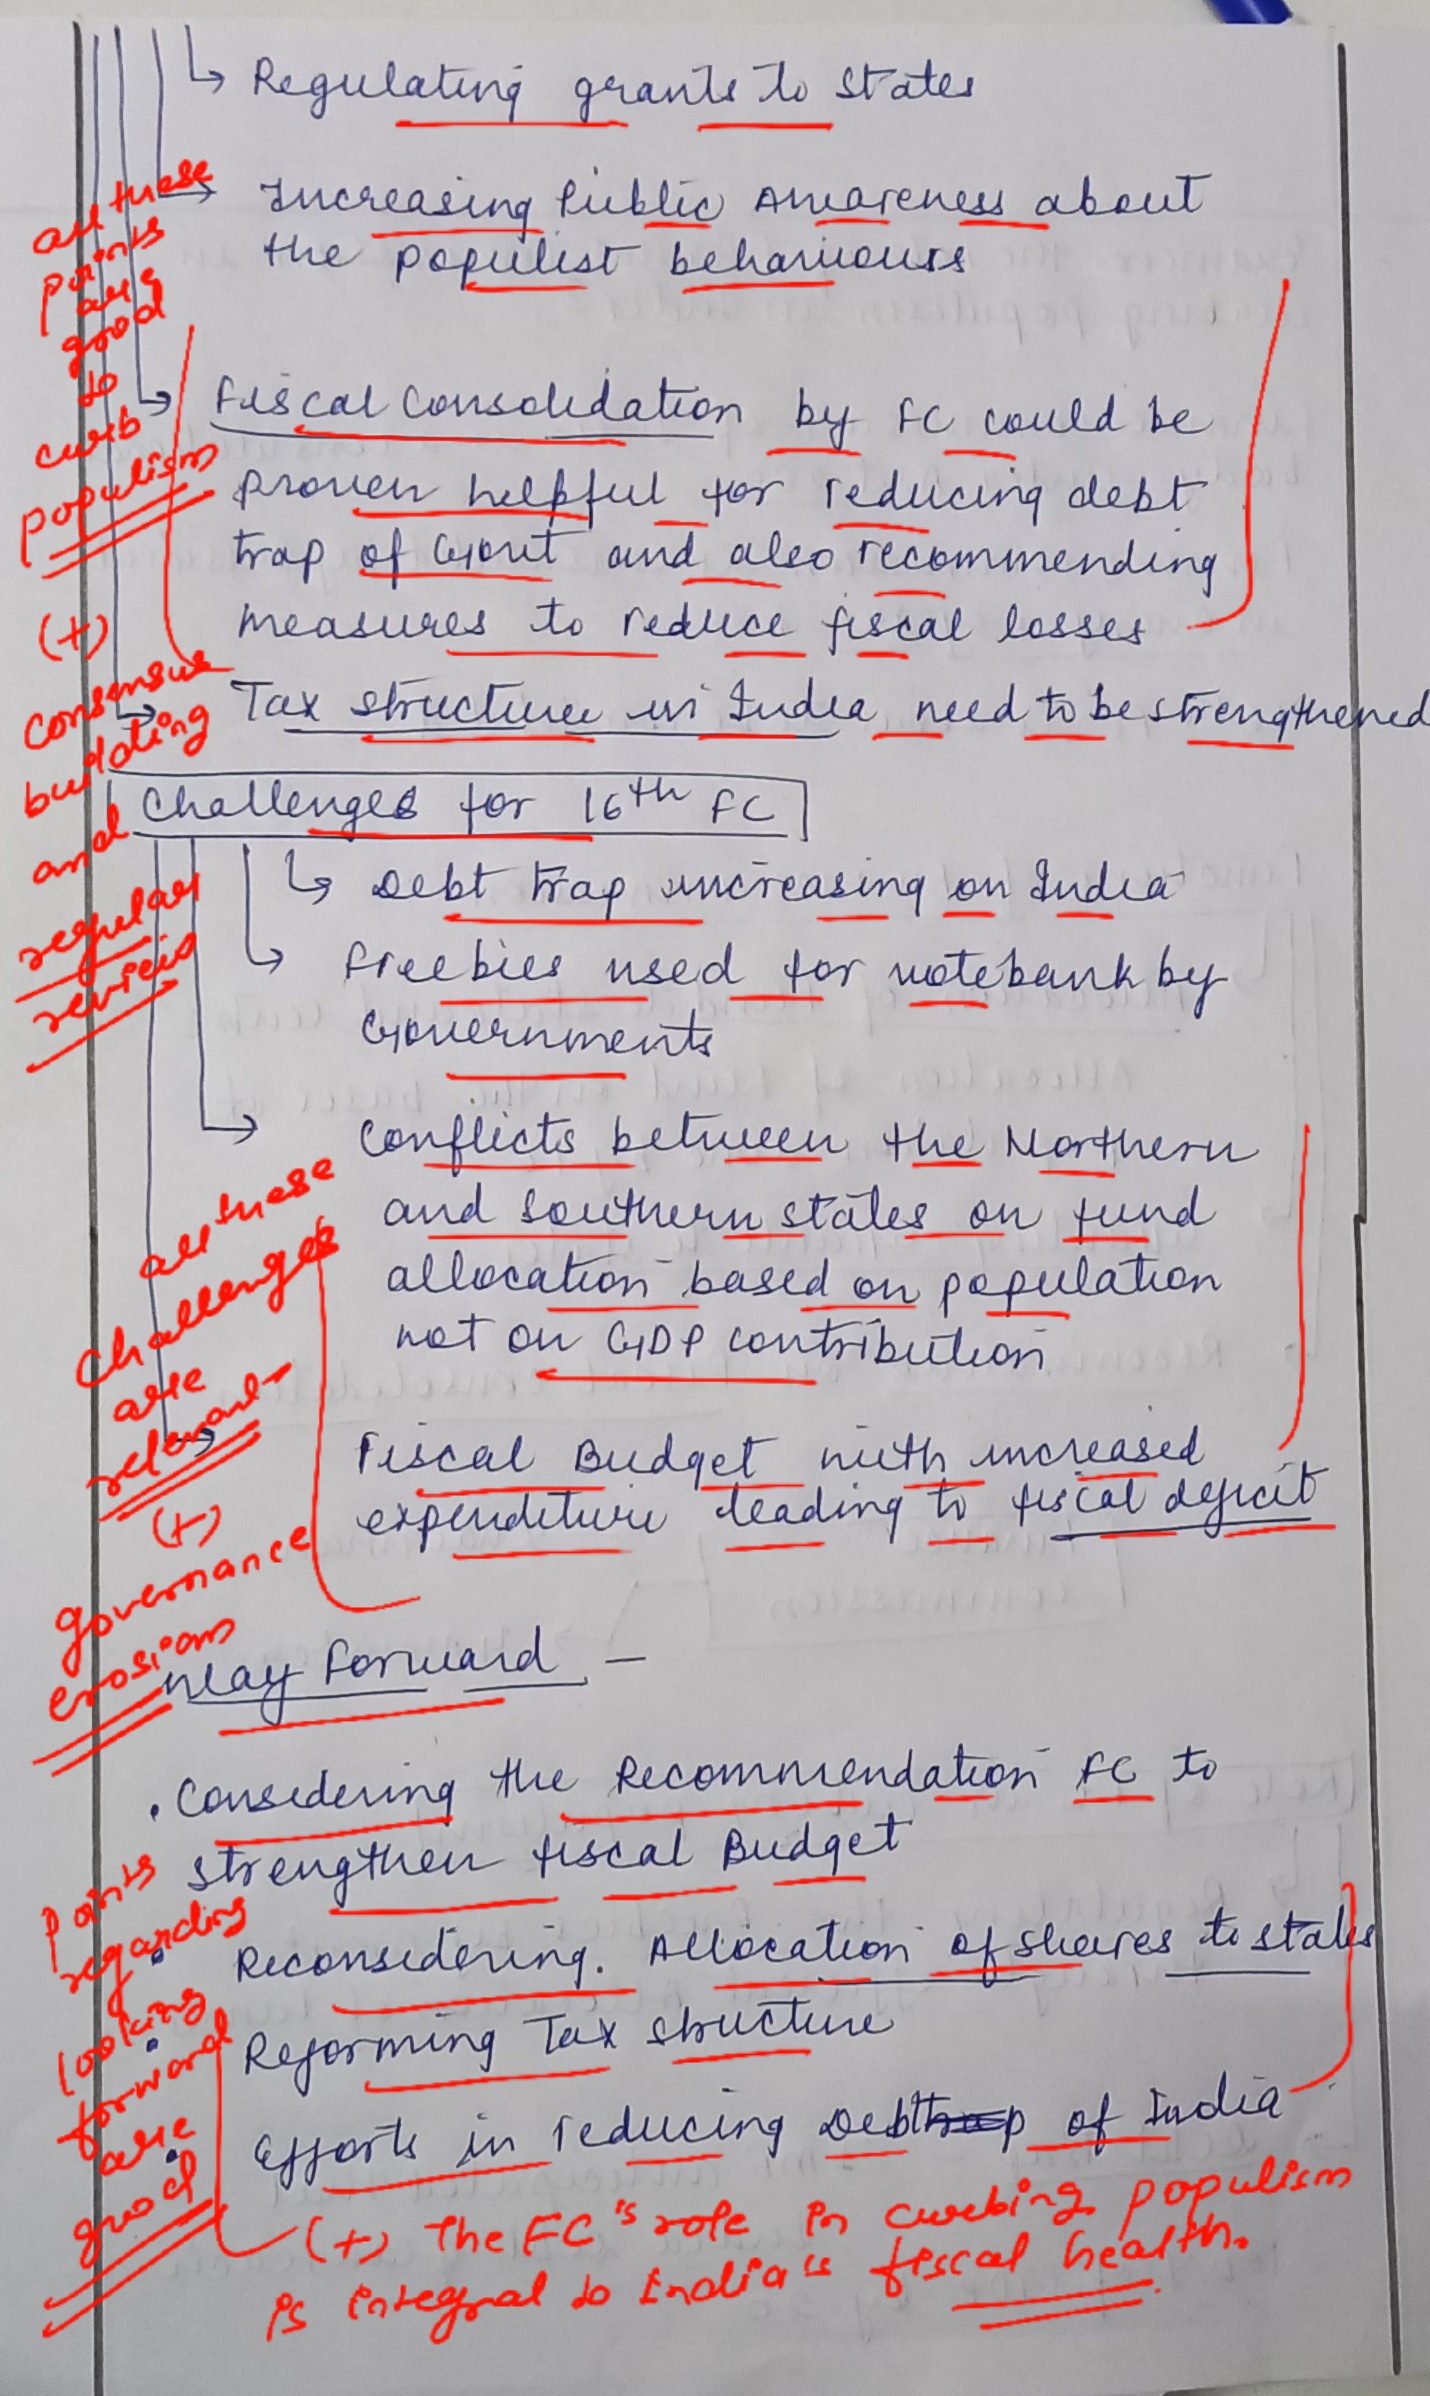 ↳ Regulating grants to States
→ Increasing Public Awareness about
the populist behaviours
→ Fiscal Consolidation by FC could be
proven helpful for reducing debt
trap of Govt and also recommending
measures to reduce fiscal losses
→ Tax structure in India need to be strengthened
all these
points
are
good
to
curb
populism
(+)
consensus
building
and
regular
Challenges for 16th FC
↳ Debt trap increasing on India
→ Freebies used for votebank by
Governments
→ Conflicts between the Northern
and Southern states on fund
allocation based on population
not on GDP contribution
→ Fiscal Budget with increased
expenditure leading to fiscal deficit
all these
challenges
are
relevant
(+)
governance
erosions
Way Forward –
• Considering the Recommendation FC to
strengthen fiscal Budget
• Reconsidering. Allocation of shares to states
• Reforming Tax structure
• Efforts in reducing Debt of India
points
regarding
looking
forward
are
good
(+) The FC's role in curbing populism
is integral to India's fiscal health.